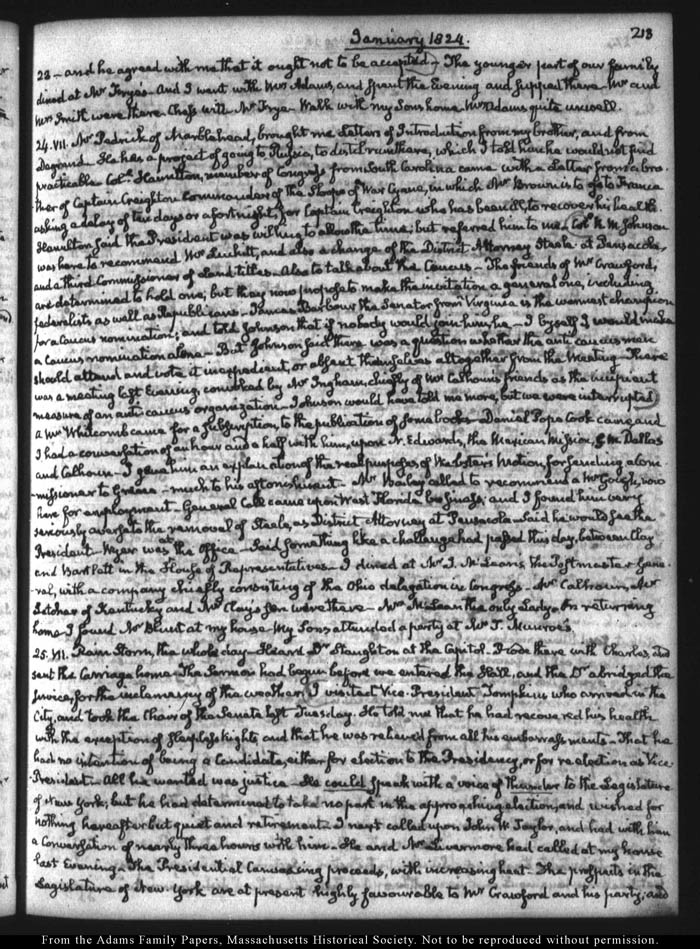 January 1824.
213
23 – and he agreed with me that it ought not to be accepted – The younger part of our family
dined at Mr Frye's – And I went with Mrs Adams, and spent the Evening and supped there. Mr and
Mrs Smith were there. Chess with Mr Frye. Walk with my Sons home Mrs Adams quite unwell.
24. VII. Mr Pedrick of Marblehead, brought me Letters of Introduction from my brother, and from
Degrand. He has a project of going to Russia, to distil rum there, which I told him he would not find
practicable. Coll. Hamilton, member of Congress from South Carolina came with a Letter from a bro-
ther of Captain Creighton Commander of the Sloop of War Cyane, in which Mr Brown is to go to France
asking a delay of ten days or a fortnight, for Captain Creighton who has been ill, to recover his health.
Hamilton said the President was willing to allow the time; but referred him to me. Coll R. M. Johnson
was here to recommend Mr Luckett, and also a change of the District Attorney Steele at Pensacola,
and a third Commissioner of Land titles – Also to talk about the Caucus – The friends of Mr Crawford,
are determined to hold one; but they now propose to make the invitation a general one, including
federalists as well as Republicans – James Barbour the Senator from Virginia is the warmest champion
for a Caucus nomination; and told Johnson that if nobody would join him, he – I by self I would make
a Caucus nomination alone – But Johnson said there was a question whether the anti caucus men
should attend and vote it inexpedient, or absent themselves altogether from the Meeting – There
was a meeting last Evening, convoked by Mr Ingham, chiefly of Mr Calhoun's friends as the incipient
measure of an anti caucus organization – Johnson would have told me more, but we were interrupted
a Mr Whitcomb came for a subscription, to the publication of some books – Daniel Pope Cook came and
I had a conversation of an hour and a half with him, upon N. Edwards, the Mexican Mission, G. M. Dallas
and Calhoun – I gave him an explanation of the real purposes of Webster's Motion, for sending a Com-
missioner to Greece – much to his astonishment – Mr Bailey called to recommend a Mr Gooch, now
here for employment – General Call came upon West Florida business; and I found him very
seriously averse to the removal of Steele, as District Attorney at Pensacola – Said he would see the
President – Wyer was at the Office – Said something like a challenge had passed this day, between Clay
and Bartlett in the House of Representatives – I dined at Mr J. McLean's, the Postmaster Gene-
ral, with a company chiefly consisting of the Ohio delegation in Congress – Mr Calhoun, Mr
Letcher of Kentucky and Mr Clay's Son were there – Mrs McLean the only Lady – On returning
home I found Mr Blunt at my house My Sons attended a party at Mr T. Munroe's.
25. VII. Rain Storm, the whole day – Heard Dr Staughton at the Capitol. I rode there with Charles, and
sent the Carriage home – The Sermon had begun before we entered the Hall, and the Dr abridged the
Service, for the inclemency of the weather. I visited Vice-President Tompkins who arrived in the
City, and took the Chair of the Senate last Tuesday. He told me that he had recovered his health
with the exception of sleepless nights and that he was relieved from all his embarrassments – That he
had no intention of being a Candidate, either for election to the Presidency, or for re-election as Vice-
President – All he wanted was justice – He could speak with a voice of thunder to the Legislature
of New York; but he had determined to take no part in the approaching election, and wished for
nothing hereafter but quiet and retirement – I next called upon John W. Taylor, and had with him
a Conversation of nearly three hours with him – He and Mr Livermore had called at my house
last Evening – The Presidential Canvassing proceeds, with increasing heat – The prospects in the
Legislature of New York are at present highly favourable to Mr Crawford and his party, and
From the Adams Family Papers, Massachusetts Historical Society. Not to be reproduced without permission.